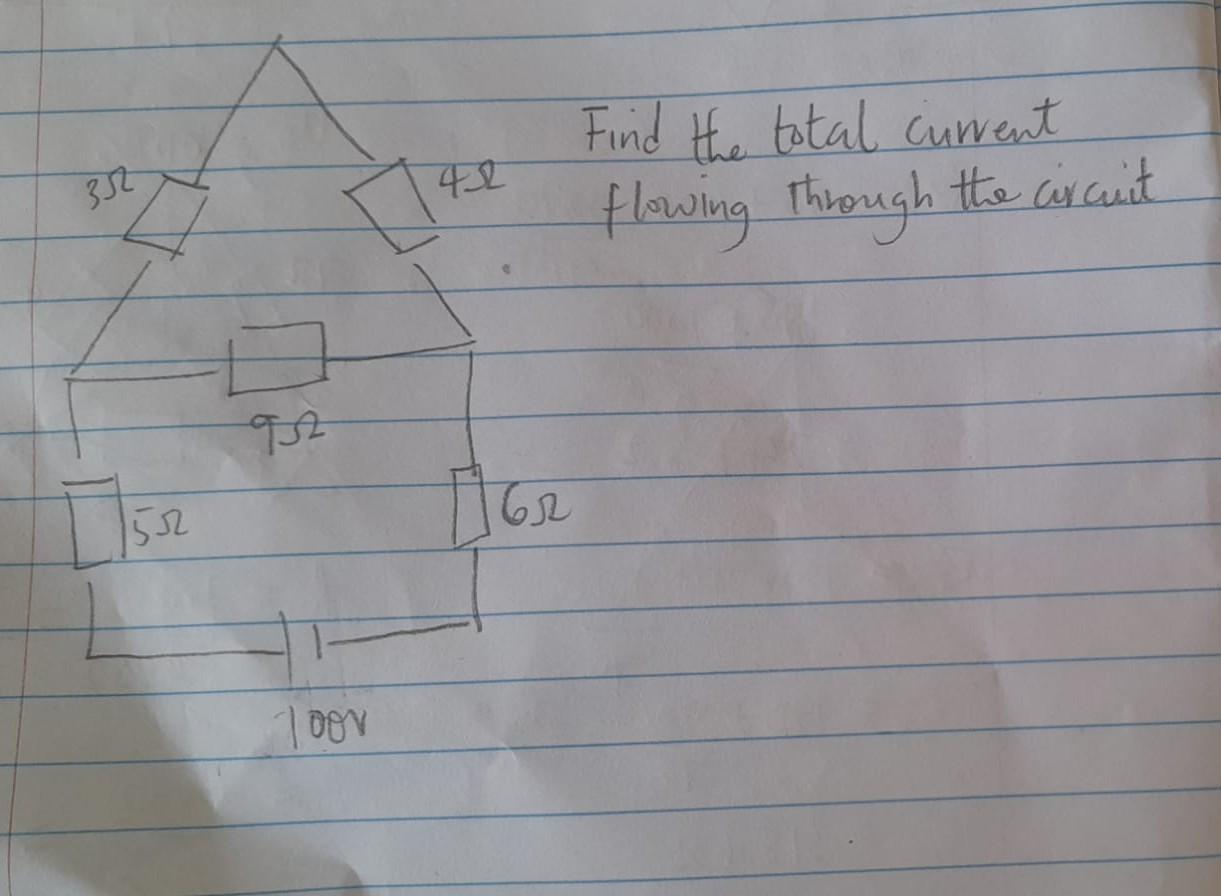 Find the total current
3Ω
4Ω
flowing through the circuit
9Ω
5Ω
6Ω
100V